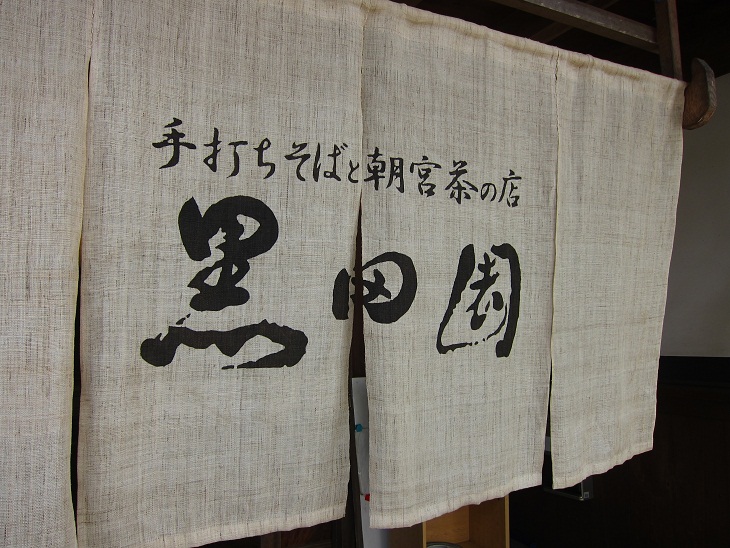 手打ちそばと朝宮茶の店
黒田園